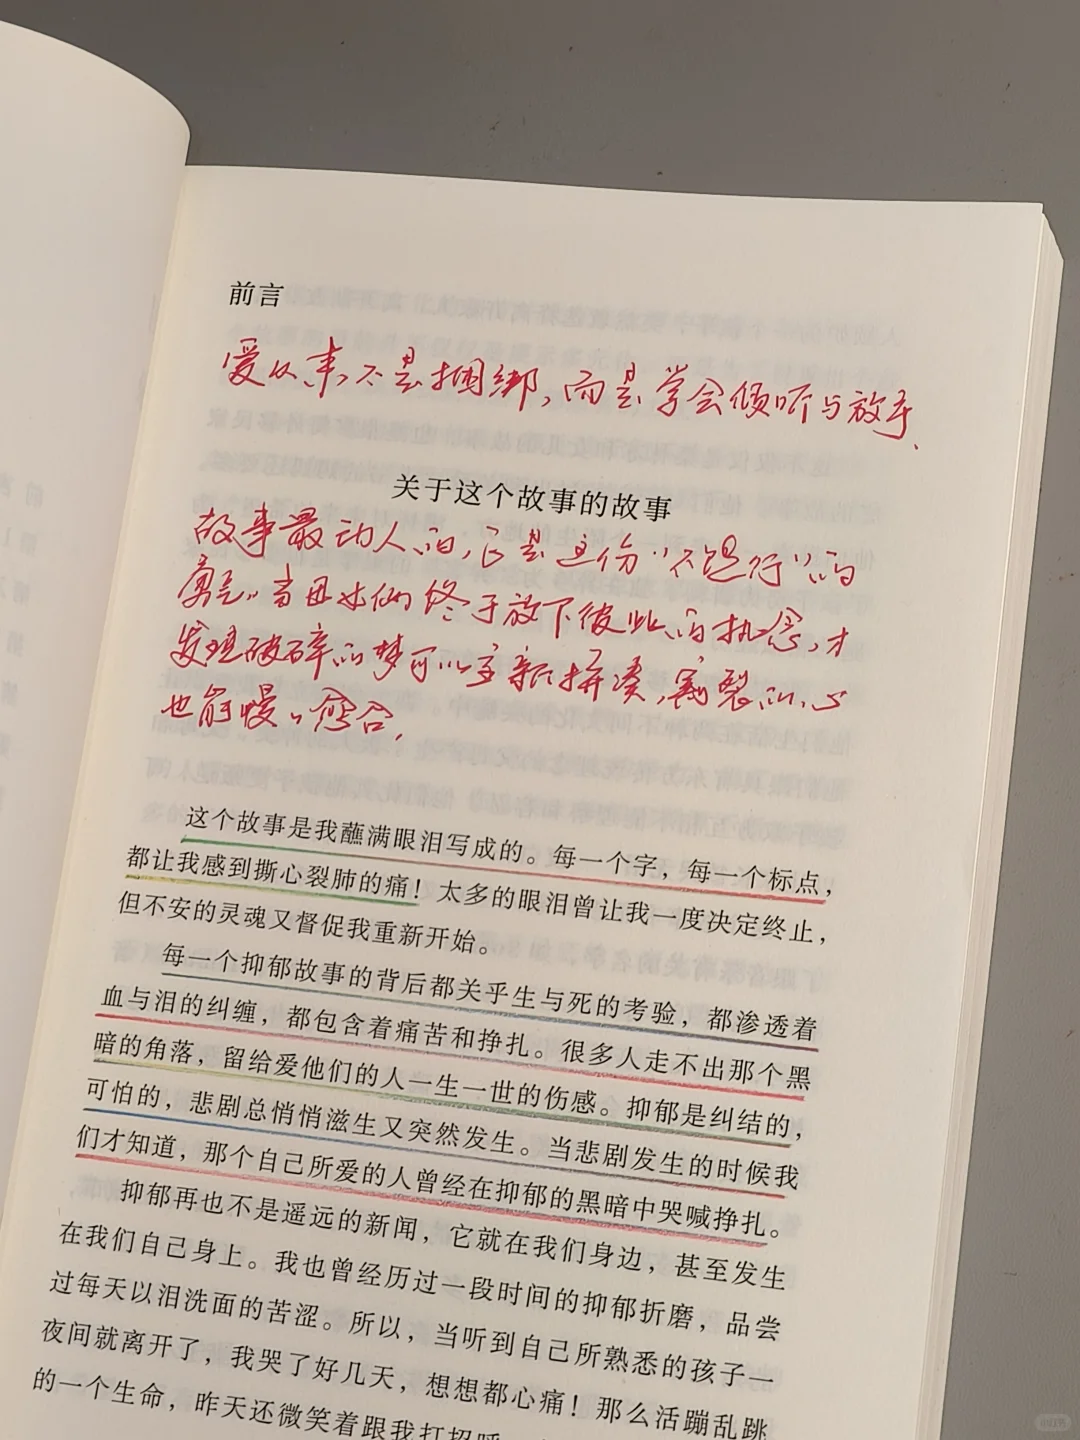 前言
爱从来不是捆绑，而是学会倾听与放手、
关于这个故事的故事
故事最动人的，它是这份“不完行”的
勇气。当母女俩终于放下彼此的执念，才
发现破碎的梦可以重新拼凑，割裂的心
也能慢慢愈合，
这个故事是我蘸满眼泪写成的。每一个字，每一个标点，
都让我感到撕心裂肺的痛！太多的眼泪曾让我一度决定终止，
但不安的灵魂又督促我重新开始。
每一个抑郁故事的背后都关乎生与死的考验，都渗透着
血与泪的纠缠，都包含着痛苦和挣扎。很多人走不出那个黑
暗的角落，留给爱他们的人一生一世的伤感。抑郁是纠结的，
可怕的，悲剧总悄悄滋生又突然发生。当悲剧发生的时候我
们才知道，那个自己所爱的人曾经在抑郁的黑暗中哭喊挣扎。
抑郁再也不是遥远的新闻，它就在我们身边，甚至发生
在我们自己身上。我也曾经历过一段时间的抑郁折磨，品尝
过每天以泪洗面的苦涩。所以，当听到自己所熟悉的孩子一
夜间就离开了，我哭了好几天，想想都心痛！那么活蹦乱跳
的一个生命，昨天还微笑着跟我打招呼
小红书